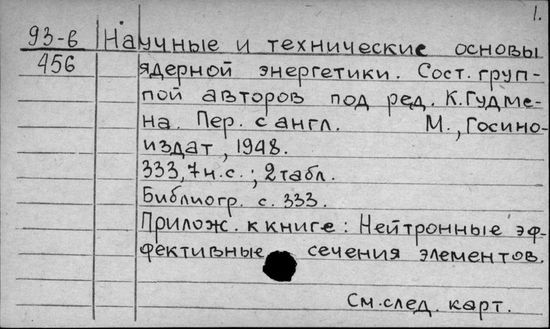 1.
93-6 Научные и технические основы
456 ядерной энергетики. Сост. груп-
пой авторов под ред. К. Гудме-
на. Пер. с англ. М., Госино-
издат, 1948.
333,7 н.с.; 2 табл.
Библиогр. с. 333.
Прилож. к книге: Нейтронные эф-
фективные сечения элементов.
См. след. карт.